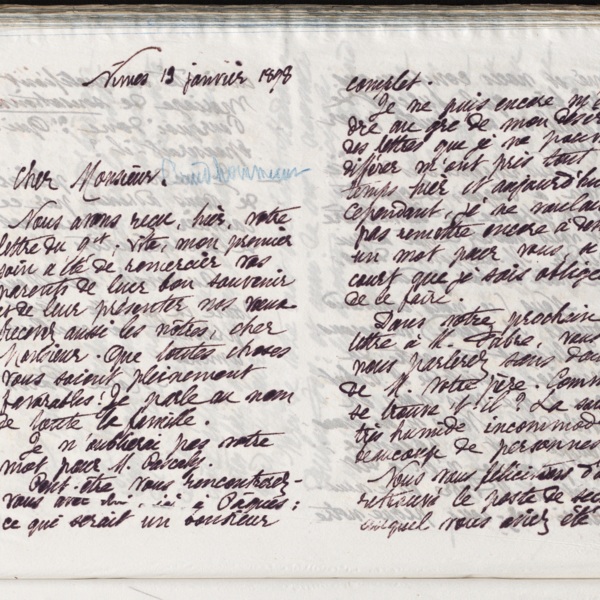 Nîmes 13 janvier 1878
cher Monsieur.
Nous avons reçu, hier, votre
lettre du 9 ct. Vite, mon premier
soin a été de remercier vos
parents de leur bon souvenir
et de leur présenter nos vœux
recevez aussi les nôtres, cher
Monsieur. Que toutes choses
vous soient pleinement
favorables! Je parle au nom
de toute la famille.
Je n'oublierai pas votre
mot pour M. 
Peut-être vous rencontrerez-
vous avec lui, ici à Pâques;
ce qui serait un bonheur
complet.
Je ne puis encore m'é
dre au gré de mon désir
des lettres que je ne pouv
différer m'ont pris tout
temps hier et aujourd'hu
cependant, je ne voulais
pas remettre encore à dem
un mot pour vous, 
court que je sois obligé
de le faire.
Dans votre prochaine
lettre à M. Fabre, vous
nous parlerez sans dou
de M. votre père. Comm
se trouve t il? La sai
très humide incommod
beaucoup de personnes
Nous vous félicitons d'a
retrouvé le poste de se
auquel vous aviez été